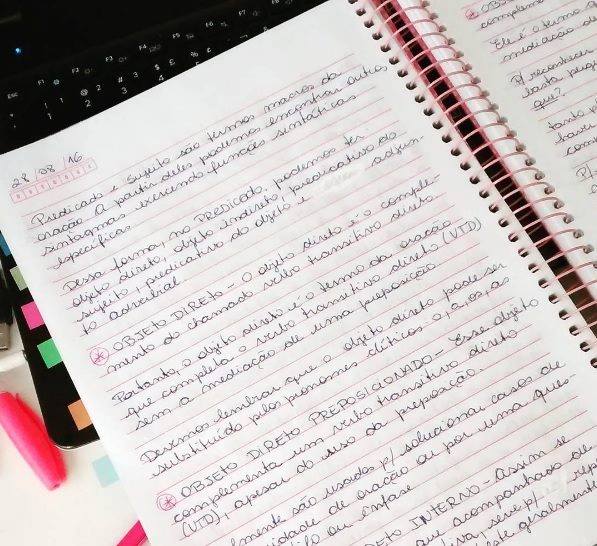 28/08/16
Predicado e sujeito são termos macros da
oração. A partir deles podemos encontrar outros
sintagmas exercendo funções sintáticas
específicas.
Dessa forma, no PREDICADO, podemos ter
objeto direto, objeto indireto, predicativo do
sujeito, predicativo do objeto e adjun-
to adverbial.
* OBJETO DIRETO - O objeto direto é o comple-
mento do chamado verbo transitivo direto.
Portanto, o objeto direto é o termo da oração
que completa o verbo transitivo direto (VTD)
sem a mediação de uma preposição.
Devemos lembrar que o objeto direto pode ser
substituído pelos pronomes clíticos o, a, os, as
* OBJETO DIRETO PREPOSICIONADO - Esse objeto
complementa um verbo transitivo direto
(VTD), apesar do uso da preposição.
mente são usados p/ solucionar casos de
idade de oração ou por uma ques-
lo ou ênfase
ETO INTERNO - assim se
que acompanhado de
tiva, serve p/ rep
geralmente
* OBJ
complem
Ele é o termo
mediação de
P/ reconhecer
basta perg
que?
tanto p
haver
com
P/
Esc
F1
F2
F3
F4